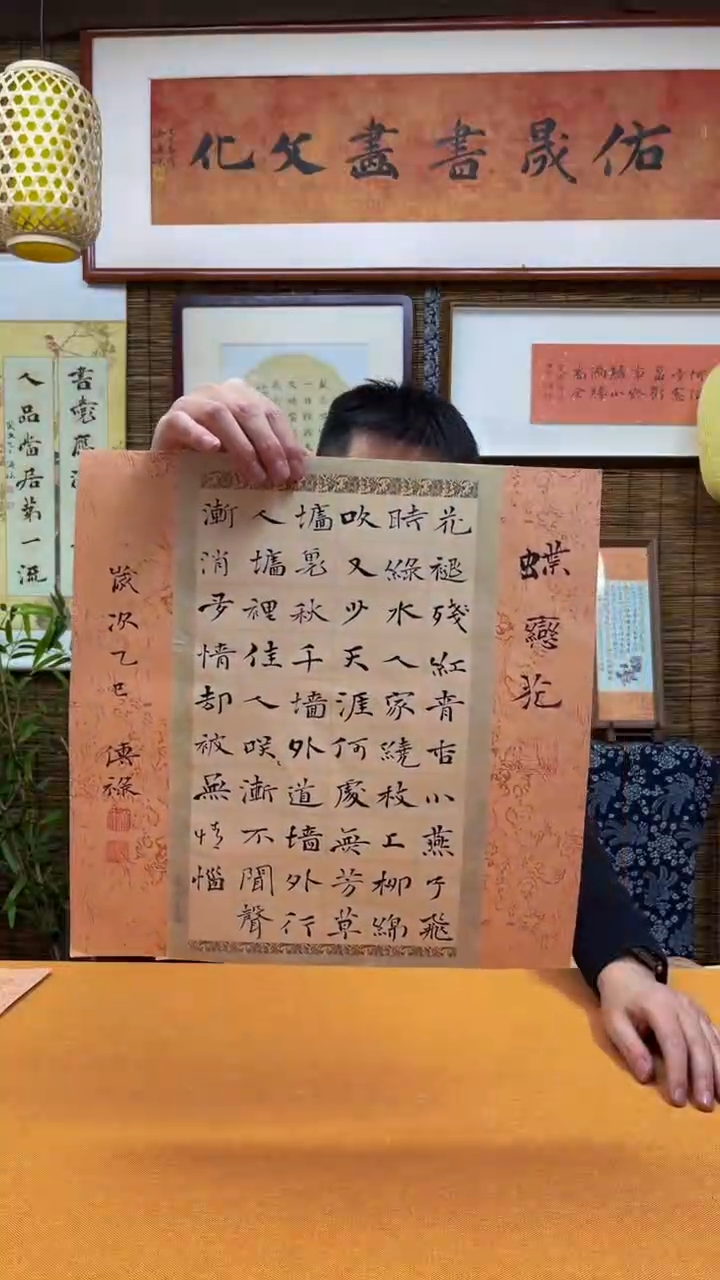 佑晟書畫文化
蝶戀花
花褪殘紅青杏小燕子飛
時綠水人家繞枝上柳綿
吹又少天涯何處無芳草
墻裏秋千墻外道墻外行
人墻裡佳人咲漸不聞聲
漸消多情却被無情惱
歲次乙巳 傳祿
人品當居第一流